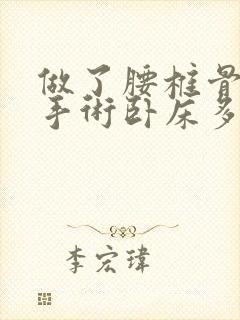 做了腰椎骨
手術卧床多
李宏瑋